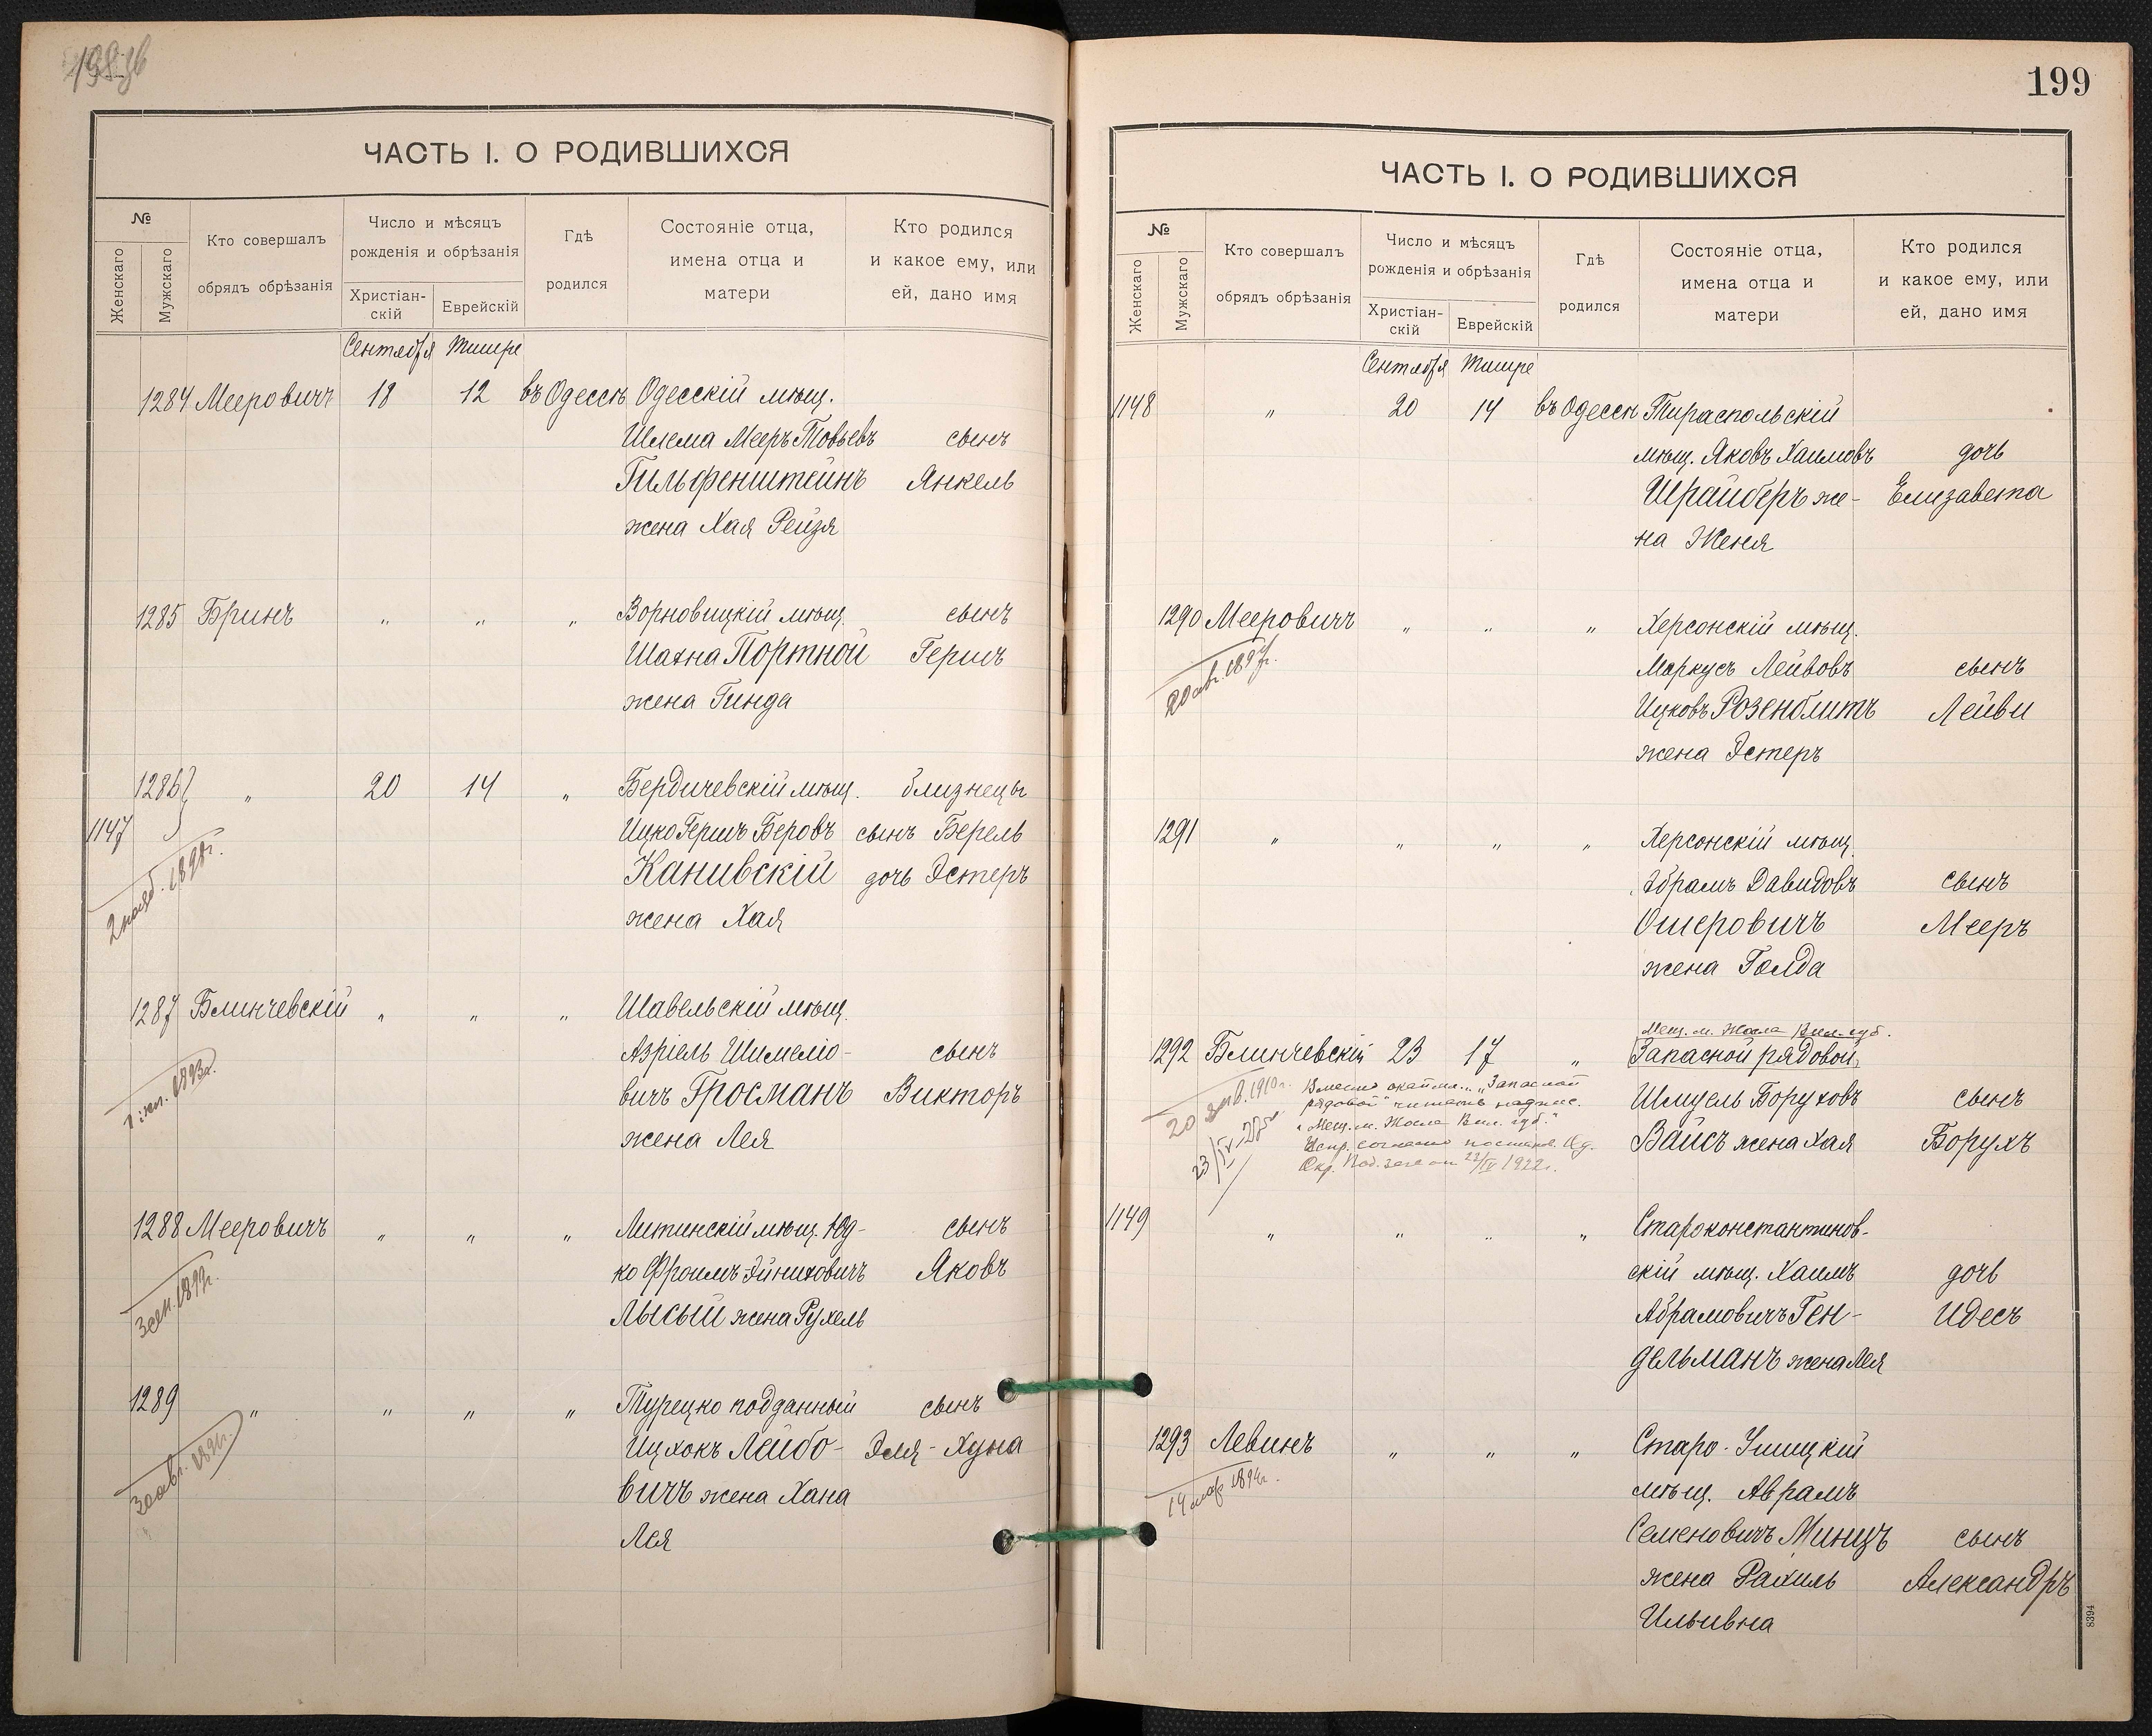 ЧАСТЬ I. О РОДИВШИХСЯ
№
Женскаго
Мужскаго
Кто совершалъ
обрядъ обрѣзанія
Число и мѣсяцъ
рожденія и обрѣзанія
Христіан-
скій
Еврейскій
Гдѣ
родился
Состояніе отца,
имена отца и
матери
Кто родился
и какое ему, или
ей, дано имя
Сентября Тишре
1284 Мееровичъ 18 12 въ Одессѣ Одесскій мѣщ.
Шлема Мееръ Товьевъ сынъ
Гильфенштейнъ Янкель
жена Хая Рейзя
1285 Бринъ " " " Ворновицкій мѣщ. сынъ
Шахна Портной Гершъ
жена Гинда
1286 " 20 14 " Бердичевскій мѣщ. близнецы
1147 Ицко Гершъ Беровъ сынъ Берель
Канивскій дочь Эстеръ
жена Хая
2 нояб. 1898г.
1287 Блинчевскій " " " Шавельскій мѣщ.
Азріель Шимеліо- сынъ
вичъ Гросманъ Викторъ
жена Лея
1288 Мееровичъ " " " Литинскій мѣщ. Юд- сынъ
ко Фроимъ Эйниховичъ Яковъ
Лысый жена Рухель
1289 " " " " Турецко подданный сынъ
Ицхокъ Лейбо- Эля-Хуна
вичъ жена Хана
Лея
199
ЧАСТЬ I. О РОДИВШИХСЯ
№
Женскаго
Мужскаго
Кто совершалъ
обрядъ обрѣзанія
Число и мѣсяцъ
рожденія и обрѣзанія
Христіан-
скій
Еврейскій
Гдѣ
родился
Состояніе отца,
имена отца и
матери
Кто родился
и какое ему, или
ей, дано имя
Сентября Тишре
1148 " 20 14 въ Одессѣ Тираспольскій
мѣщ. Яковъ Хаимовъ дочь
Шрайберъ же- Елизавета
на Женя
1290 Мееровичъ " " " Херсонскій мѣщ.
Маркусъ Лейвовъ сынъ
Ицковъ Розенблитъ Лейви
жена Эстеръ
20 авг. 1897г.
1291 " " " " Херсонскій мѣщ.
Абрамъ Давидовъ сынъ
Ошеровичъ Мееръ
жена Голда
Мещ. м. Жосла Вил. губ.
1292 Блинчевскій 23 17 " Запасной рядовой
Шмуель Боруховъ сынъ
Вайсъ жена Хая Борухъ
Вместо "Запасной
рядовой" читать надпис.
"Мещ. м. Жосла Вил. губ."
1149 " " " " Староконстантинов-
скій мѣщ. Хаимъ дочь
Абрамовичъ Ген- Идесъ
дельманъ жена Лея
1293 Левинъ " " " Старо-Ушицкій
мѣщ. Аврамъ
Семеновичъ Минцъ сынъ
жена Рахиль Александръ
Ильивна
14 мар. 1894г.
8394